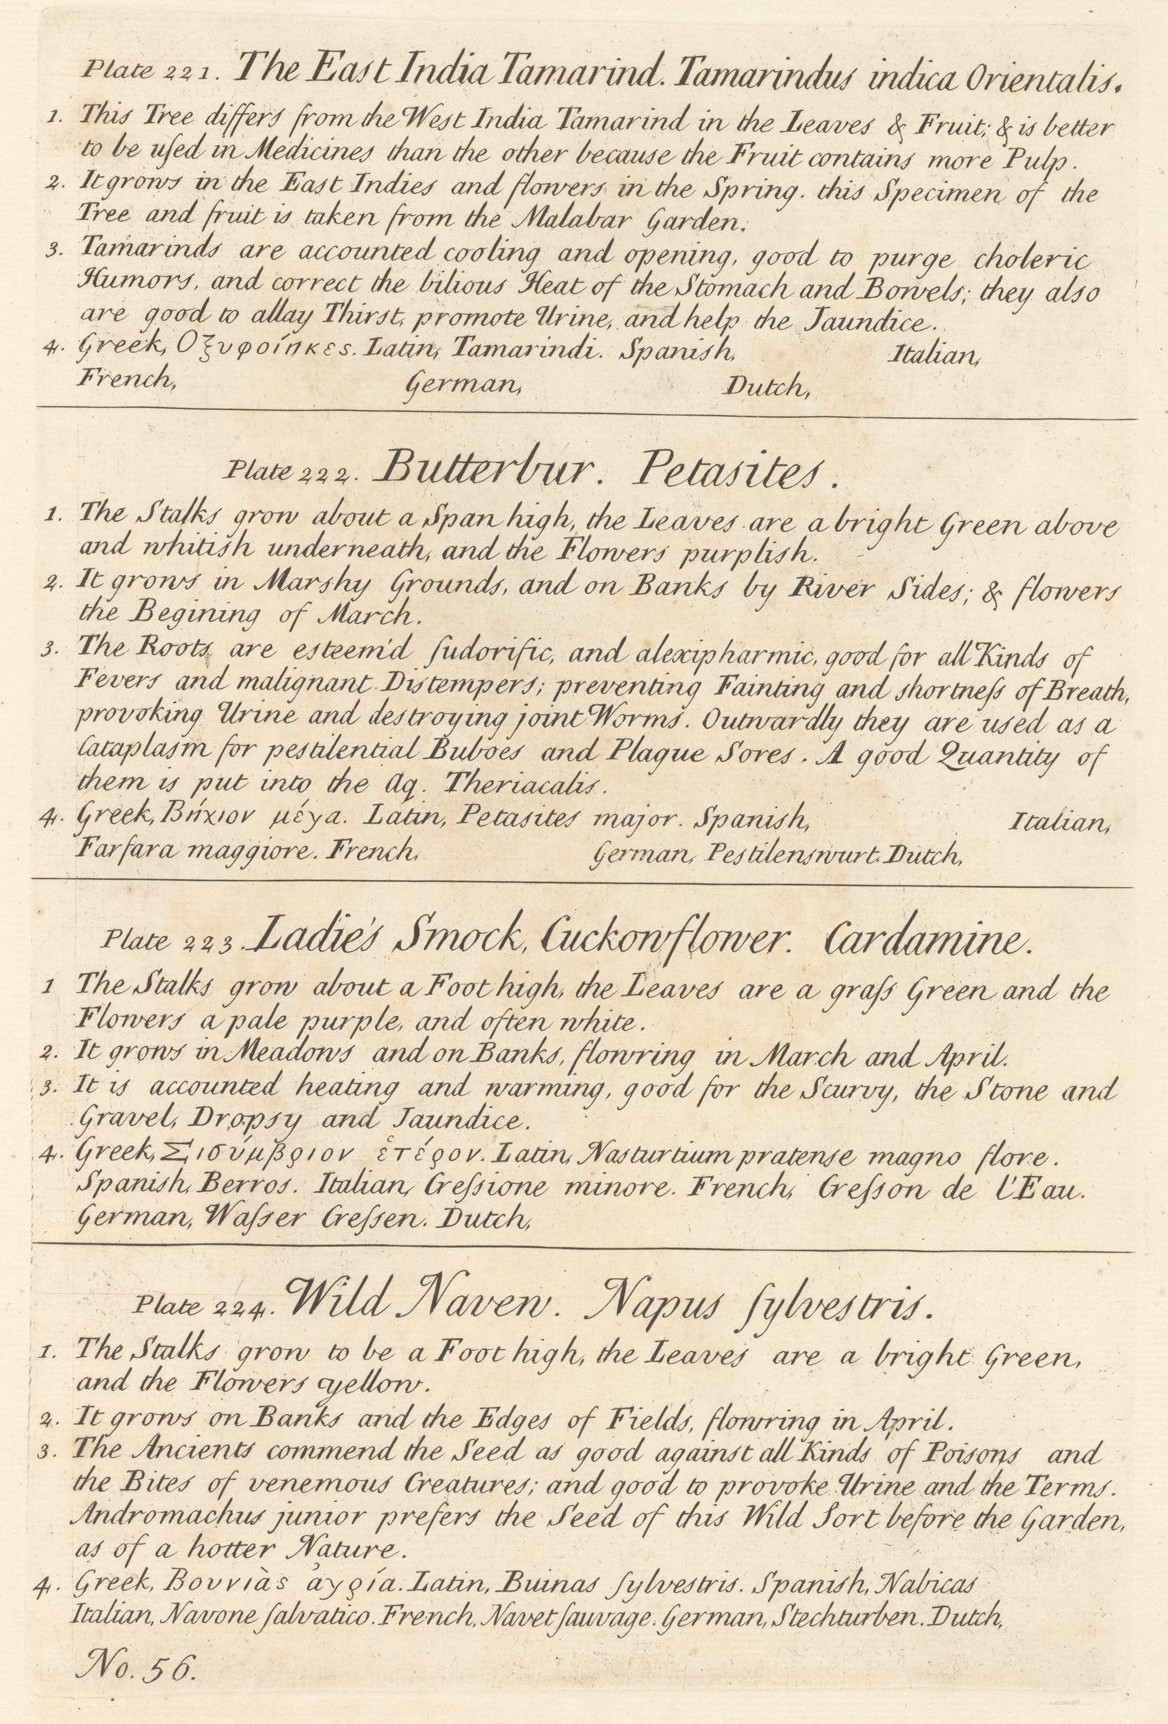 Plate 221. The East India Tamarind. Tamarindus indica Orientalis.
1. This Tree differs from the West India Tamarind in the Leaves & Fruit; & is better
to be uſed in Medicines than the other because the Fruit contains more Pulp.
2. It grows in the East Indies and flowers in the Spring. this Specimen of the
Tree and fruit is taken from the Malabar Garden.
3. Tamarinds are accounted cooling and opening, good to purge choleric
Humors, and correct the bilious Heat of the Stomach and Bowels; they also
are good to allay Thirst, promote Urine, and help the Jaundice.
4. Greek, Οξυφοίηκες. Latin, Tamarindi. Spanish, Italian,
French, German, Dutch,
Plate 222. Butterbur. Petasites.
1. The Stalks grow about a Span high, the Leaves are a bright Green above
and whitish underneath, and the Flowers purplish.
2. It grows in Marshy Grounds, and on Banks by River Sides; & flowers
the Begining of March.
3. The Roots are esteem'd ſudorific, and alexipharmic, good for all Kinds of
Fevers and malignant Distempers; preventing Fainting and shortneſs of Breath,
provoking Urine and destroying joint Worms. Outwardly they are used as a
Cataplasm for pestilential Buboes and Plague Sores. A good Quantity of
them is put into the Aq. Theriacalis.
4. Greek, Βήχιον μέγα. Latin, Petasites major. Spanish, Italian,
Farfara maggiore. French, German, Pestilenswurt. Dutch,
Plate 223. Ladie's Smock, Cuckowflower. Cardamine.
1 The Stalks grow about a Foot high, the Leaves are a graſs Green and the
Flowers a pale purple, and often white.
2. It grows in Meadows and on Banks, flowring in March and April.
3. It is accounted heating and warming, good for the Scurvy, the Stone and
Gravel, Dropsy and Jaundice.
4. Greek, Σισύμβριον ἑτέρον. Latin, Nasturtium pratense magno flore.
Spanish, Berros. Italian, Creſsione minore. French, Creſson de l'Eau.
German, Waſser Creſsen. Dutch,
Plate 224. Wild Navew. Napus ſylvestris.
1. The Stalks grow to be a Foot high, the Leaves are a bright Green,
and the Flowers yellow.
2. It grows on Banks and the Edges of Fields, flowring in April.
3. The Ancients commend the Seed as good against all Kinds of Poisons and
the Bites of venemous Creatures; and good to provoke Urine and the Terms.
Andromachus junior prefers the Seed of this Wild Sort before the Garden,
as of a hotter Nature.
4. Greek, Βουνιὰς ἀγρία. Latin, Buinas ſylvestris. Spanish, Nabicas
Italian, Navone ſalvatico. French, Navet ſauvage. German, Stechturben. Dutch,
No. 56.